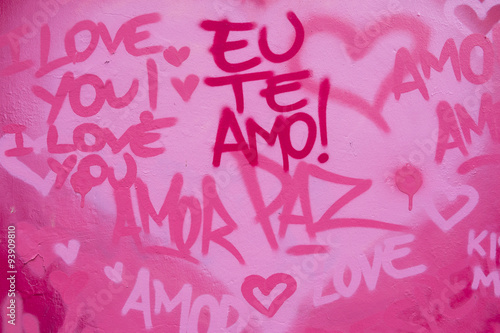 I LOVE
YOU!
I LOVE
YOU
EU
TE
AMO!
AMO
AMO
AMOR
PAZ
AMOR
LOVE
93909810